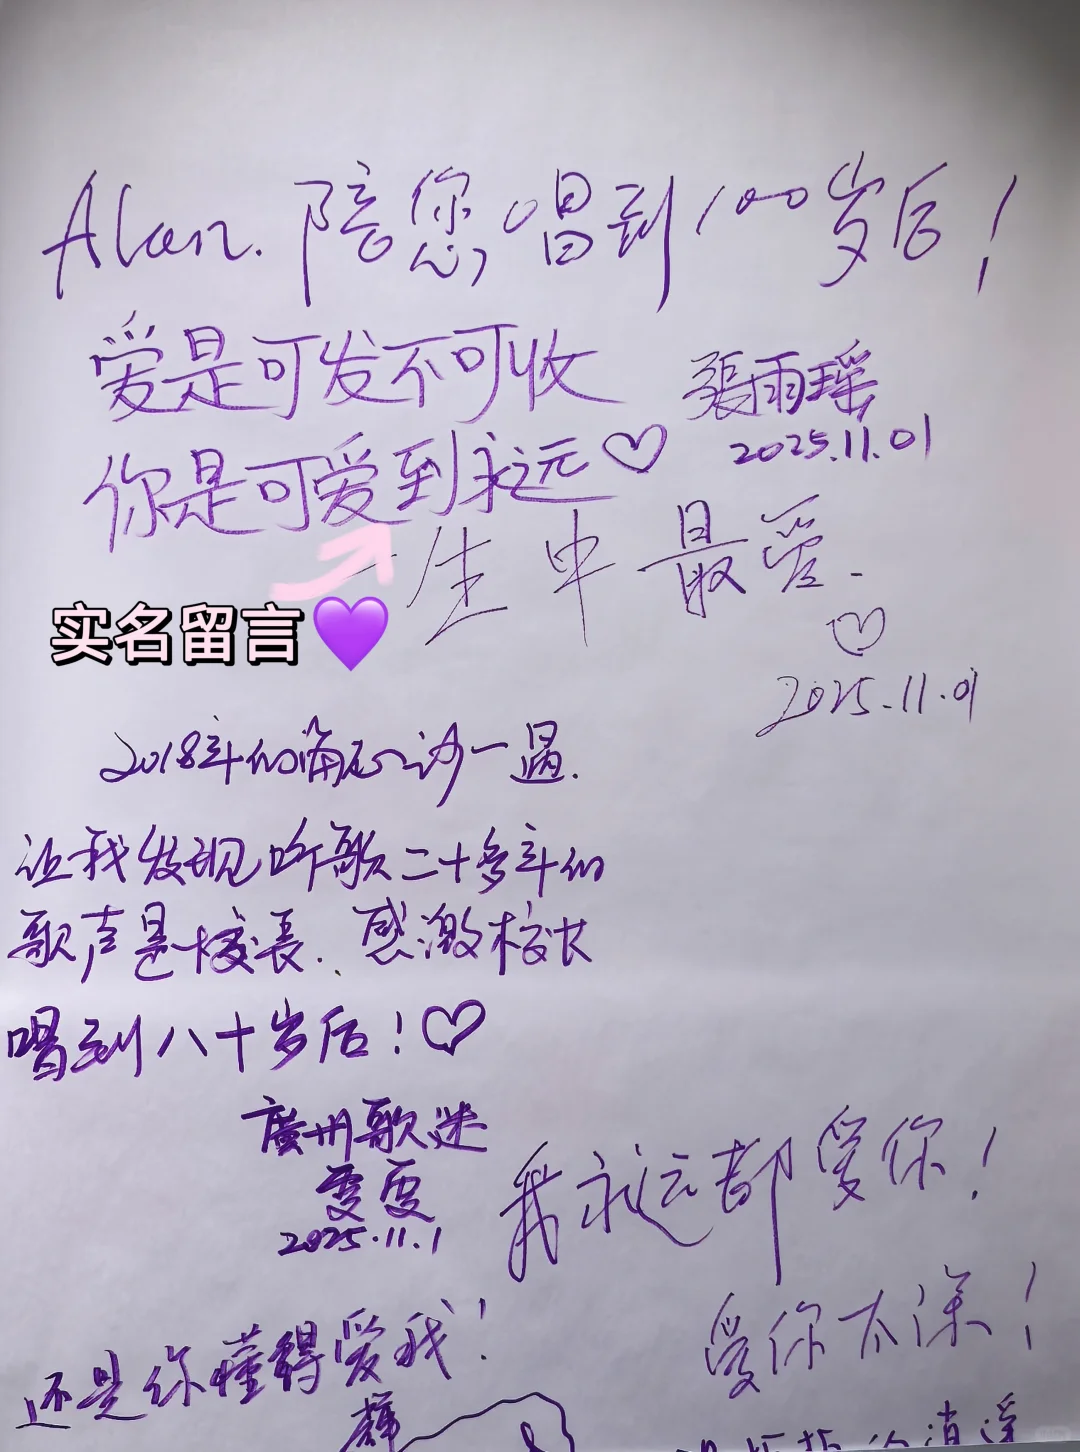 Alan. 陪您唱到100岁后！
爱是可发不可收
張雨瑶
2025.11.01
你是可爱到永远♡
一生中最爱.
♡
2025.11.01
实名留言💜
2018年的海心沙一遇.
让我发现听歌二十多年的
歌声是校長. 感激校长
唱到八十岁后！♡
廣州歌迷
雯雯
2025.11.1
我永远都爱你！
爱你太深！
还是你懂得爱我！